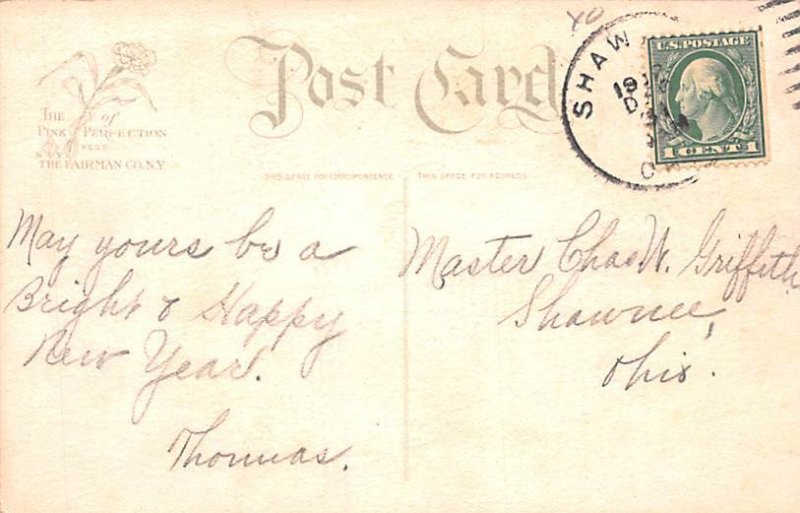 THE of
PINK PERFECTION
THE FAIRMAN CO. N.Y.
Post Card
THIS SPACE FOR CORRESPONDENCE
THIS SPACE FOR ADDRESS
SHAW
U.S. POSTAGE
1 CENT 1
May yours be a
Bright & Happy
New Year.
Thomas.
Master Chas. W. Griffith
Shawnee,
Ohio.